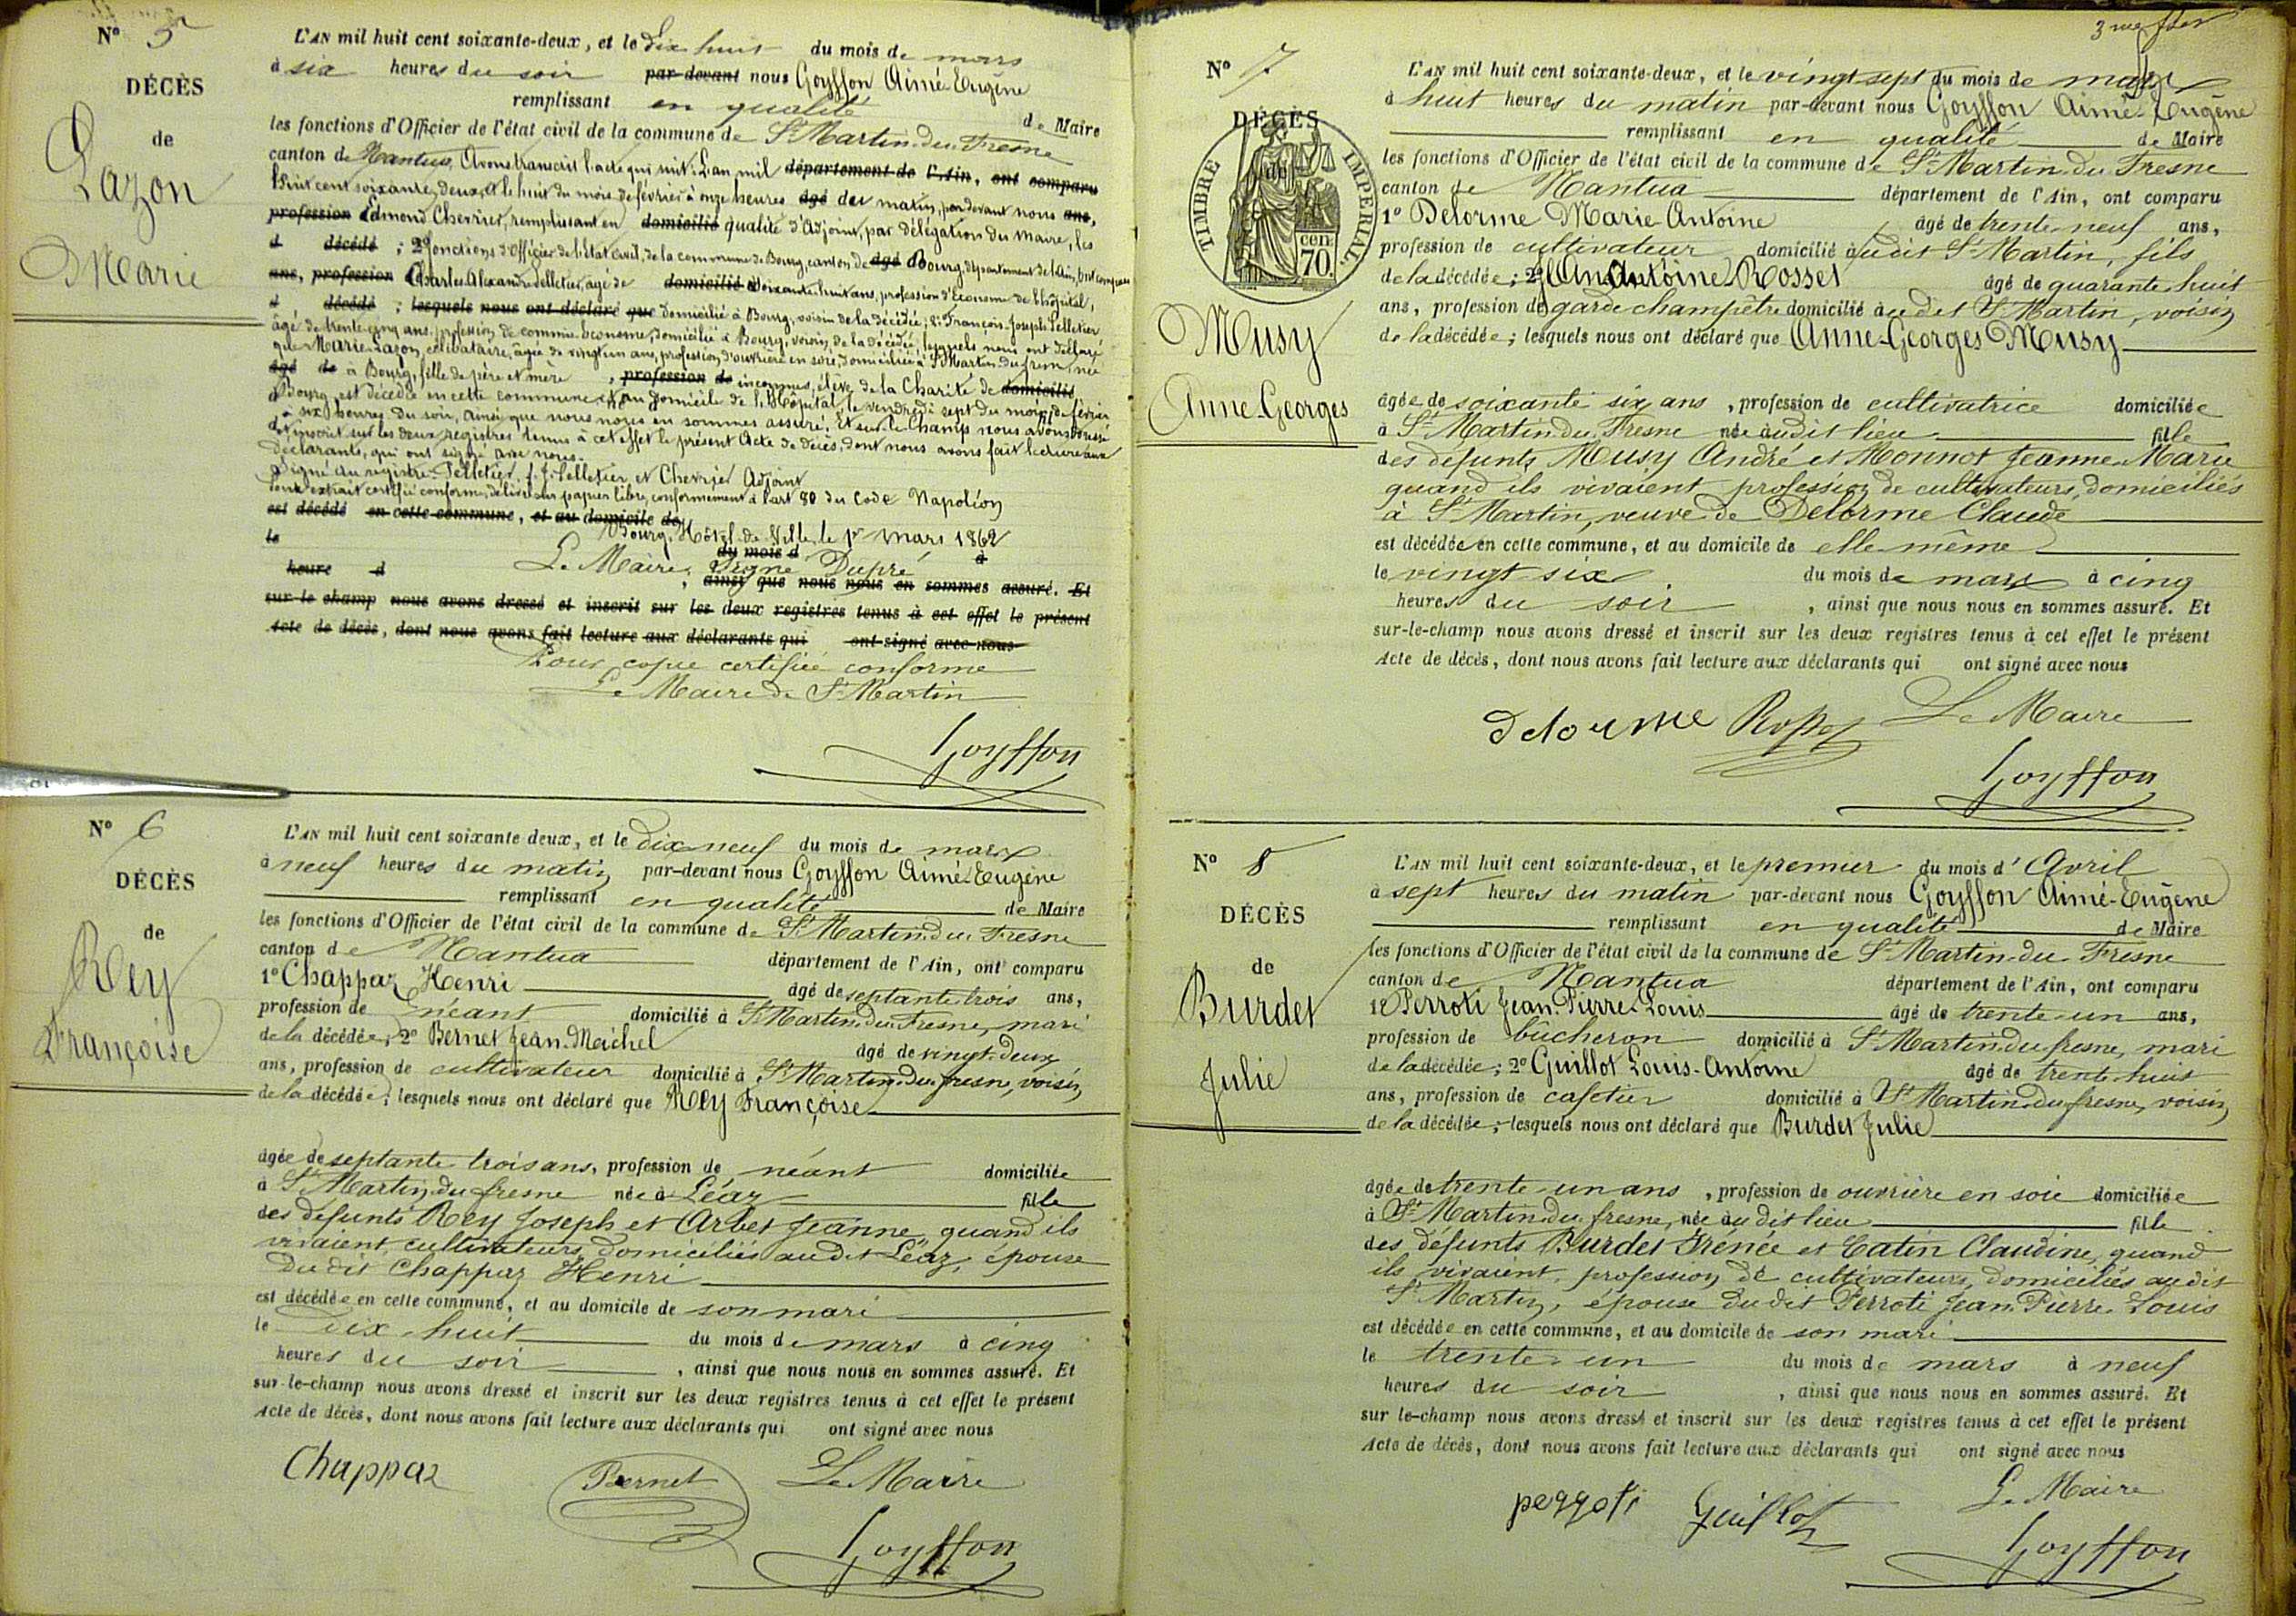 Nº 5
DÉCÈS
de
Lazon
Marie
L'AN mil huit cent soixante-deux, et le Dix huit du mois de mars
à six heures du soir par-devant nous Goyffon Aimé-Eugène
remplissant en qualité de Maire
les fonctions d'Officier de l'état civil de la commune de St Martin-du-Fresne
canton de Nantua, Avons transcrit l'acte qui suit: L'an mil département de l'Ain, ont comparu
huit cent soixante deux, et le huit du mois de février à onze heures âgé du matin, par devant nous ans,
profession Edmond Chevrier, remplissant en domicilié qualité d'Adjoint, par délégation du Maire, les
d décédé ; 2º fonctions d'Officier de l'Etat civil, de la commune de Bourg, canton de âgé Bourg, département de l'Ain, ont comparu
ans, profession Charles Alexandre Pelletier, âgé de domicilié à soixante huit ans, profession d'Econome de l'hôpital,
d décédé ; lesquels nous ont déclaré que domicilié à Bourg, voisin de la décédée; 2º François Joseph Pelletier
âgé de trente cinq ans, profession de commis-économe, domicilié à Bourg, voisin de la décédée, lesquels nous ont déclaré
que Marie Lazon, célibataire, âgée de vingt un ans, profession d'ouvrière en soie, domiciliée à St Martin du fresne, née
âgé de à Bourg, fille de père et mère , profession de inconnus, élève de la Charité de domicilié
Bourg, est décédée en cette commune et au domicile de l'Hôpital, le vendredi sept du mois de février
à six heures du soir, ainsi que nous nous en sommes assuré. Et sur-le-champ nous avons dressé
et inscrit sur les deux registres tenus à cet effet le présent Acte de décès, dont nous avons fait lecture aux
déclarants, qui ont signé avec nous.
Signé au registre Pelletier, f. J. Pelletier, et Chevrier Adjoint
Pour extrait certifié conforme, délivré sur papier libre, conformément à l'art 80 du Code Napoléon
est décédé en cette commune, et au domicile de
Bourg, Hôtel-de-Ville, le 1er mars 1862
le du mois d à
Le Maire, Signé Dupré
heure d , ainsi que nous nous en sommes assuré. Et
sur-le-champ nous avons dressé et inscrit sur les deux registres tenus à cet effet le présent
Acte de décès, dont nous avons fait lecture aux déclarants qui ont signé avec nous
Pour copie certifiée conforme
Le Maire de St Martin
Goyffon
Nº 6
DÉCÈS
de
Rey
Françoise
L'AN mil huit cent soixante-deux, et le dix-neuf du mois de mars
à neuf heures du matin par-devant nous Goyffon Aimé-Eugène
remplissant en qualité de Maire
les fonctions d'Officier de l'état civil de la commune de St Martin-du-Fresne
canton de Nantua département de l'Ain, ont comparu
1º Chappaz Henri âgé de septante trois ans,
profession de néant domicilié à St Martin-du-Fresne, mari
de la décédée; 2º Bernet Jean-Michel âgé de vingt-deux
ans, profession de cultivateur domicilié à St Martin-du-fresne, voisin
de la décédée; lesquels nous ont déclaré que Rey Françoise
âgée de septante trois ans, profession de néant domiciliée
à St Martin-du-fresne née à Léaz fille
des défunts Rey Joseph et Arbet Jeanne, quand ils
vivaient, cultivateurs, domiciliés audit Léaz, épouse
du dit Chappaz Henri
est décédée en cette commune, et au domicile de son mari
le Dix-huit du mois de mars à cinq
heures du soir , ainsi que nous nous en sommes assuré. Et
sur-le-champ nous avons dressé et inscrit sur les deux registres tenus à cet effet le présent
Acte de décès, dont nous avons fait lecture aux déclarants qui ont signé avec nous
Chappaz Bernet Le Maire
Goyffon
Nº 7
DÉCÈS
de
TIMBRE IMPERIAL
cen. 70
Musy
Anne-Georges
L'AN mil huit cent soixante-deux, et le vingt-sept du mois de mars
à huit heures du matin par-devant nous Goyffon Aimé-Eugène
remplissant en qualité de Maire
les fonctions d'Officier de l'état civil de la commune de St Martin-du-Fresne
canton de Nantua département de l'Ain, ont comparu
1º Delorme Marie-Antoine âgé de trente-neuf ans,
profession de cultivateur domicilié audit St Martin, fils
de la décédée; 2º Antoine Rosset âgé de quarante huit
ans, profession de garde champêtre domicilié audit St Martin, voisin
de la décédée; lesquels nous ont déclaré que Anne-Georges Musy
âgée de soixante six ans, profession de cultivatrice domiciliée
à St Martin-du-Fresne née audit lieu fille
des défunts Musy André et Monnot Jeanne-Marie
quand ils vivaient profession de cultivateurs, domiciliés
à St Martin, veuve de Delorme Claude
est décédée en cette commune, et au domicile de elle-même
le vingt-six du mois de mars à cinq
heures du soir , ainsi que nous nous en sommes assuré. Et
sur-le-champ nous avons dressé et inscrit sur les deux registres tenus à cet effet le présent
Acte de décès, dont nous avons fait lecture aux déclarants qui ont signé avec nous
Delorme Rosset Le Maire
Goyffon
Nº 8
DÉCÈS
de
Burdet
Julie
L'AN mil huit cent soixante-deux, et le premier du mois d'Avril
à sept heures du matin par-devant nous Goyffon Aimé-Eugène
remplissant en qualité de Maire
les fonctions d'Officier de l'état civil de la commune de St Martin-du-Fresne
canton de Nantua département de l'Ain, ont comparu
1º Perroti Jean-Pierre-Louis âgé de trente-un ans,
profession de bûcheron domicilié à St Martin-du-fresne, mari
de la décédée; 2º Guillot Louis-Antoine âgé de trente-huit
ans, profession de cafetier domicilié à St Martin-du-fresne, voisin
de la décédée; lesquels nous ont déclaré que Burdet Julie
âgée de trente-un ans, profession de ouvrière en soie domiciliée
à St Martin-du-fresne, née audit lieu fille
des défunts Burdet Irénée et Catin Claudine, quand
ils vivaient, profession de cultivateurs, domiciliés audit
St Martin, épouse du dit Perroti Jean-Pierre-Louis
est décédée en cette commune, et au domicile de son mari
le trente-un du mois de mars à neuf
heures du soir , ainsi que nous nous en sommes assuré. Et
sur-le-champ nous avons dressé et inscrit sur les deux registres tenus à cet effet le présent
Acte de décès, dont nous avons fait lecture aux déclarants qui ont signé avec nous
perroti Guillot Le Maire
Goyffon